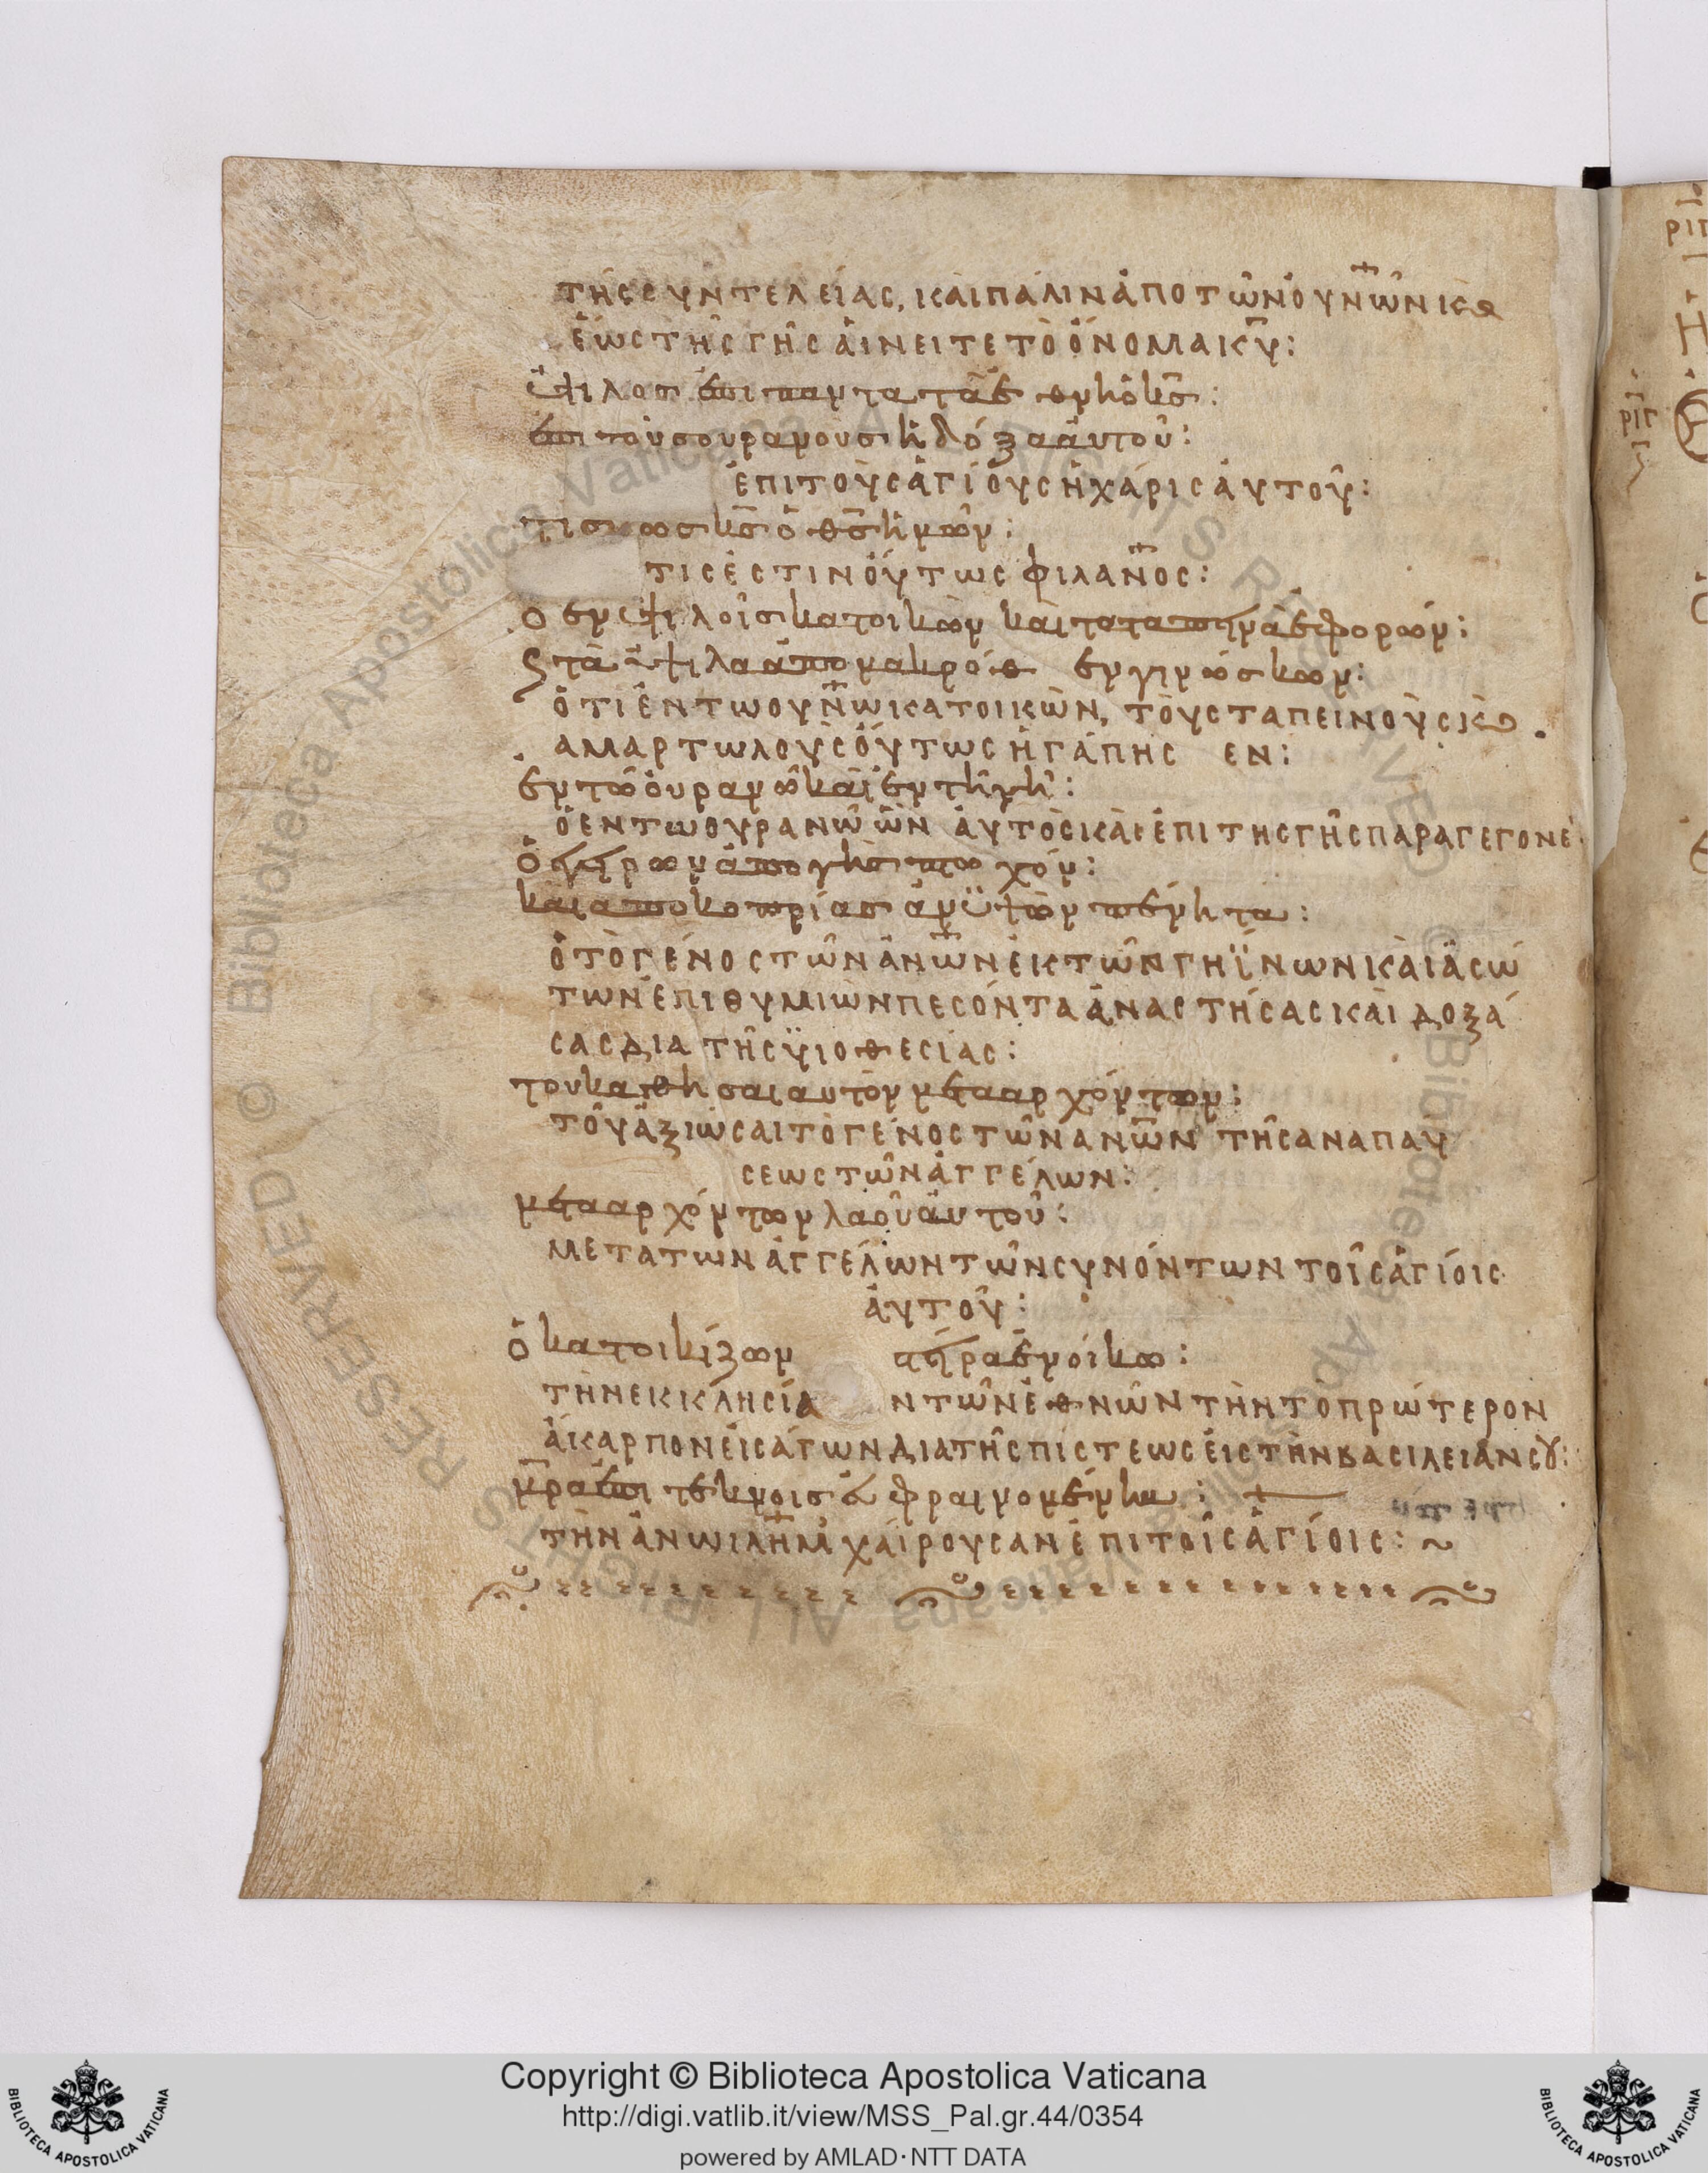 τῆς συντελείας, καὶ πάλιν ἀπὸ τῶν οὐνῶν κ(αὶ)
ἕως τῆς γῆς αἰνεῖτε τὸ ὄνομα κυ:
ὑψιλὸσ ἐπι παντα τὰ ἔθνη ὁ κσ:
ἐπι τοὺσ ουρανοὺσ ἡ δόξα ἀυτοῦ:
ἐπι τοὺς ἁγίους ἡ χάρις ἀυτοῦ:
τισ ωσ κσ ὁ θσ ἡμῶν:
τίς ἐστιν οὕτως φιλανος:
ὁ εν ὑψιλοῖσ κατοικῶν καὶ τα ταπηνὰ ἐφορῶν:
ς τὰ ὑψιλα ἀπο μακρόθ εν γινώσκων:
ὅτι ἐν τω ουνω κατοικὼν, τοὺς ταπεινοὺς κ(αὶ)
αμαρτωλους οὕτως ἠγάπησ εν:
ἐν τῶ ὀυρανῶ καὶ ἐν τῆ γῆ:
ὁ εν τω ουρανῶ ὢν ἀυτὸς καὶ ἐπι της γῆς παραγεγονε
ὁ εγηρων ἀπο γῆσ πτωχόν:
καὶ απο κοπρίασ ἀνυψῶν πένητα:
ὁ τὸ γένος τῶν ἀνων ἐκ τῶν γηΐνων καὶ ἀσώ
των ἐπιθυμιῶν πεσόντα ἀναστήσας καὶ δοξά
σας δια τῆς υἱοθεσίας:
του καθησαι αυτὸν μετα αρχόντων:
τοῦ ἀξιῶσαι τὸ γένος τῶν ανων τῆς αναπαυ
σεως τῶν ἀγγέλων:
μετα αρχόντων λαοῦ ἀυτοῦ:
μετα των ἀγγέλων τῶν συνόντων τοῖς ἁγίοις
ἀυτοῦ:
ὁ κατοικίζων στῆρα ἐν οίκω:
τὴν εκκλησία ν τῶν ἐθνῶν τὴν τὸ πρώτερον
ἄκαρπον εἰσάγων δια τῆς πίστεως εἰς τὴν βασιλειαν σου:
μρα ἐπι τέκνοισ ἐυφραινομένη:
τὴν ἄνω ιλημ χαίρουσαν ἐπι τοῖς ἁγίοις:
Copyright © Biblioteca Apostolica Vaticana
http://digi.vatlib.it/view/MSS_Pal.gr.44/0354
powered by AMLAD·NTT DATA
BIBLIOTECA APOSTOLICA VATICANA
BIBLIOTECA APOSTOLICA VATICANA